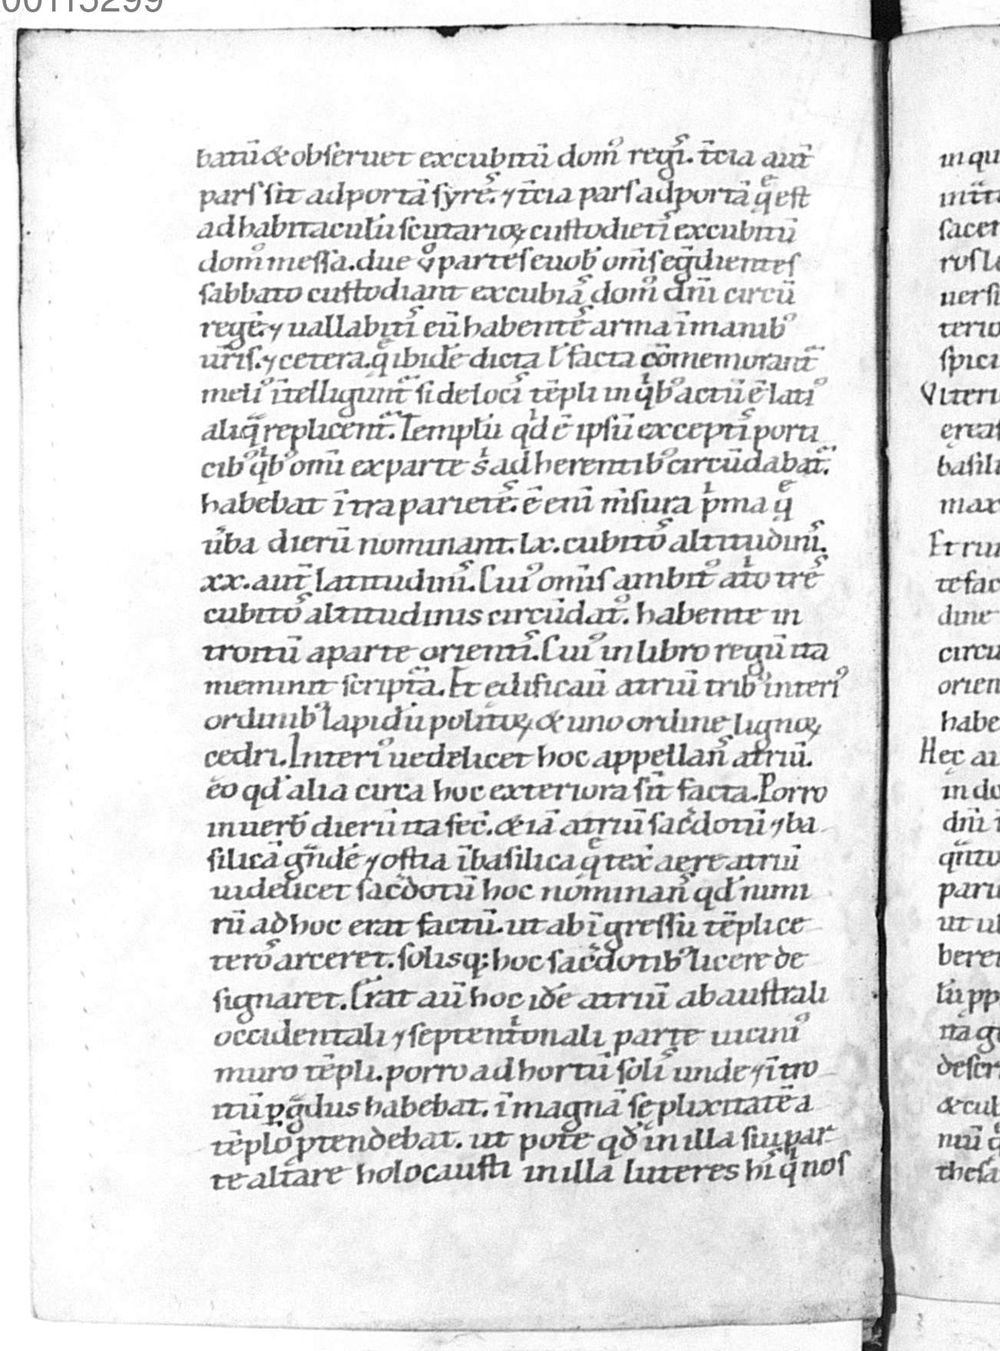 00115299
batū & obseruet excubitū dom᷒ regis. t̄cia aut̄
pars sit ad portā syrē. ⁊ t̄cia pars ad portā q̄ est
ad habitaculū scutarioꝝ custodietis excubitū
dom᷒ messa. due ꝟ partes euob᷒ om̄s eḡdientes
sabbato custodiant excubias dom᷒ dn̄i circū
regē. ⁊ uallabitis eū habentes arma īmanib᷒
ur̄is. ⁊ cetera. q̄ ibidē dicta ł facta cōmemorant᷑
meli᷒ ītelligunt᷑ si de locis tēpli in qͥb᷒ actū ē lati᷒
aliq̄ replicent᷑. Templū qd̄ ē ipsū exceptis porti
cib᷒ qͥb᷒ om̄i ex parte sͥ adherentib᷒ circūdabat᷑.
habebat ītra parietes. ē eni m̄sura pͥma q̄
ūba dierū nominant. lx. cubitos altitudinis.
xx. aut̄ latitudinis. Cui᷒ om̄is ambit᷒ atͥo tres
cubitos altitudinis circūdat᷒. habente in
troitū a parte orientis. Cui᷒ in libro regū ita
meminit scriptᷓa. Et edificauı̄ atriū trib᷒ interi᷒
ordinib᷒ lapidū politoꝝ & uno ordine lignoꝝ
cedri. Interi᷒ uedelicet hoc appellans atriū.
eo qd̄ alia circa hoc exteriora sīt facta. Porro
in uerb̄ dierū ita fec̄. & iā atriū sac̄dotū ⁊ ba
silicā gᷓndē ⁊ ostia ībasilica q̄ tex̄ aere atriū
uidelicet sac̄dotū hoc nominans qd̄ nimi
rū ad hoc erat factū. ut ab īgressu tēpli ce
teros arceret. solisq; hoc sac̄dotib᷒ licere de
signaret. Erat aū hoc idē atriū ab australi
occidentali ⁊ septentͥonali parte uicini᷒
muro tēpli. porro ad hortū solis unde ⁊ ītro
itū ꝓgᷓdus habebat. ī magnā sę ꝓlixitatē a
tēplo ꝓtendebat. ut pote qd̄ in illa sui par
te altare holocausti in illa luteres hīs qͥ nos